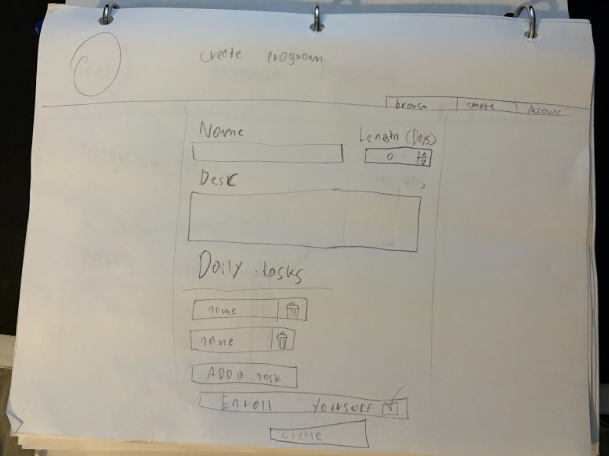 create program
browse create Account
Name Length (Days)
0
Desc
Daily tasks
name
name
ADD a task
Enroll yourself
create